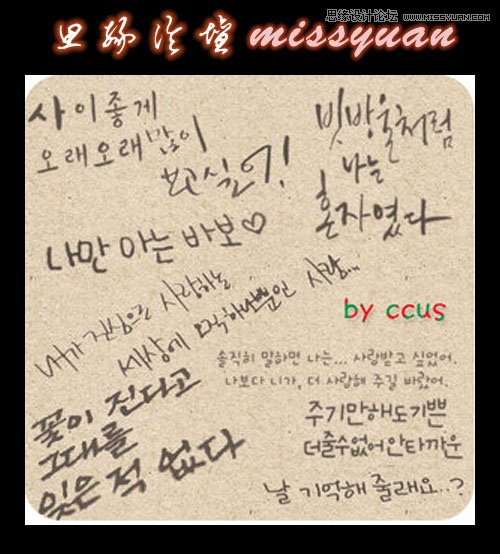 思缘论坛 missyuan
思缘设计论坛 WWW.MISSYUAN.COM
사이좋게
오래오래 많이
보고싶어!
빗방울처럼
나는
혼자였다
나만 아는 바보♡
내가 진심으로 사랑하는
세상에 오직 하나뿐인 사람...
by ccus
솔직히 말하면 나는... 사랑받고 싶었어.
나보다 니가, 더 사랑해 주길 바랬어.
주기만해도기쁜
더줄수없어안타까운
꽃이 진다고
그대를
잊은 적 없다
날 기억해 줄래요..?